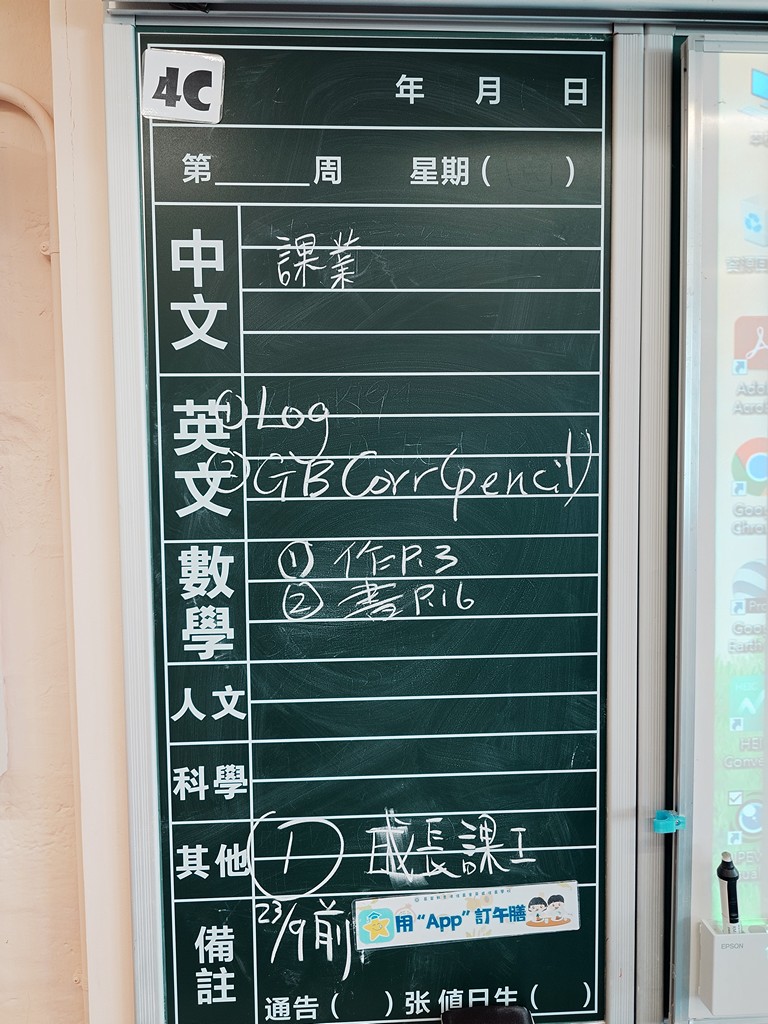 4C
年 月 日
第______周 星期( )
中文
課業
英文
① Log
② GB Corr (pencil)
數學
① 作P.3
② 書P.16
人文
科學
其他
① 成長課工
備註
23/9前
用“App”訂午膳
通告( )张 值日生( )
EPSON